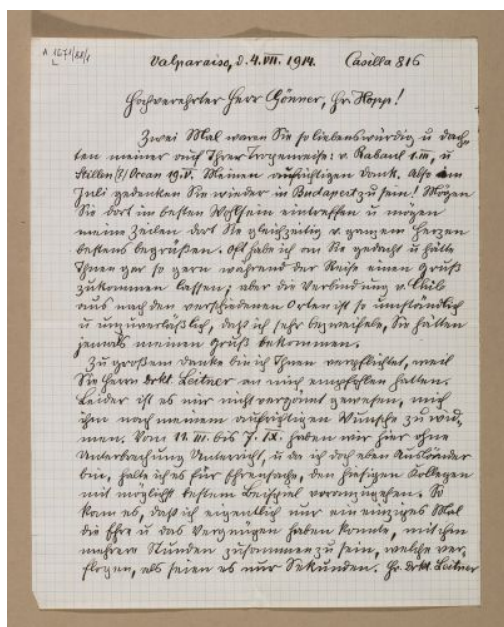 A 1671/88/1
L
Valparaiso, d. 4. VII. 1914. Casilla 816
Hochverehrter Herr Gönner, Hr. Hopp!
Zwei Mal waren Sie so liebenswürdig u dach-
ten meiner auf Ihrer Tropenreise: v. Rabaul 1. III, u
Stillen (?) Ocean 19. V. Meinen aufrichtigen Dank. Also im
Juli gedenken Sie wieder in Budapest zu sein! Mögen
Sie dort im besten Wohlsein eintreffen u mögen
meine Zeilen dort Sie gleichzeitig v. ganzem Herzen
bestens begrüßen. Oft habe ich an Sie gedacht u hätte
Ihnen gar so gern während der Reise einen Gruß
zukommen lassen; aber die Verbindung v. Chile
aus nach den verschiedenen Orten ist so umständlich
u unzuverläßlich, daß ich sehr bezweifele, Sie hätten
jemals meinen Gruß bekommen.
Zu großem Danke bin ich Ihnen verpflichtet, weil
Sie Herrn Drkt. Leitner an mich empfohlen hatten.
Leider ist es mir nicht vergönnt gewesen, mich
ihm nach meinem aufrichtigen Wunsche zu wid-
men. Vom 11. III. bis 7. IX. haben wir hier ohne
Unterbrechung Unterricht, u da ich doch eben Ausländer
bin, halte ich es für Ehrensache, den hiesigen Kollegen
mit möglichst bestem Beispiel voranzugehen. So
kam es, daß ich eigentlich nur ein einziges Mal
die Ehre u das Vergnügen haben konnte, mit ihm
mehrere Stunden zusammen zu sein, welche ver-
flogen, als seien es nur Sekunden. Hr. Drkt. Leitner